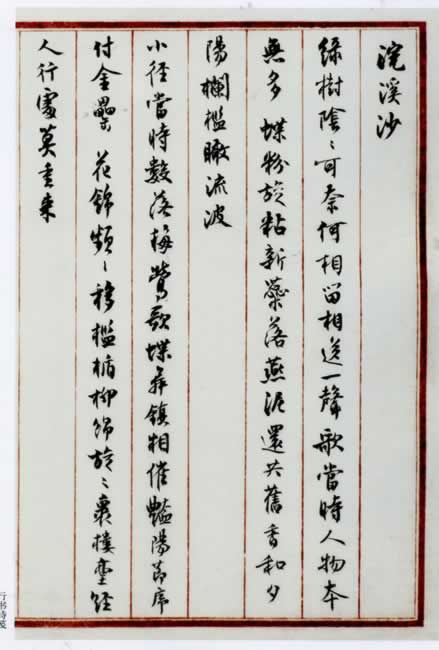 浣溪沙
綠樹陰〻可奈何相留相送一聲歌當時人物本
無多 蝶粉旋粘新蘂落燕泥還共舊香和夕
陽欄檻瞰流波
小徑當時數落梅鶯歌蝶舞鎮相催豔陽節序
付金罍 花錦頻〻移檻楯柳綿旋〻裹樓臺經
人行處莫重來
行书诗笺